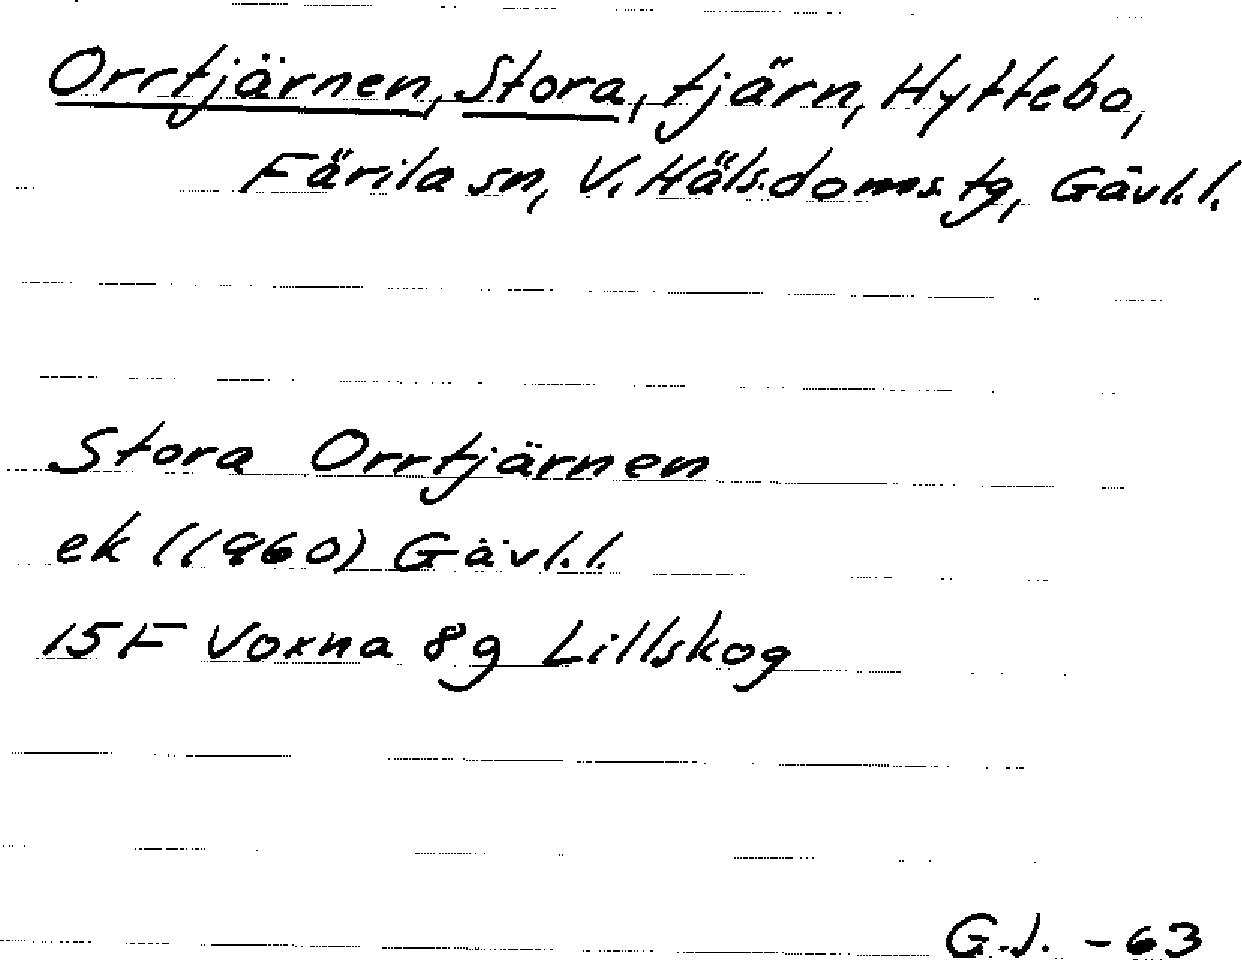 Orrtjärnen, Stora, tjärn, Hyttebo,
Färila sn, V. Häls. doms. tg, Gävl. l.
Stora Orrtjärnen
ek (1960) Gävl. l.
15F Voxna 8g Lillskog
G.J. -63